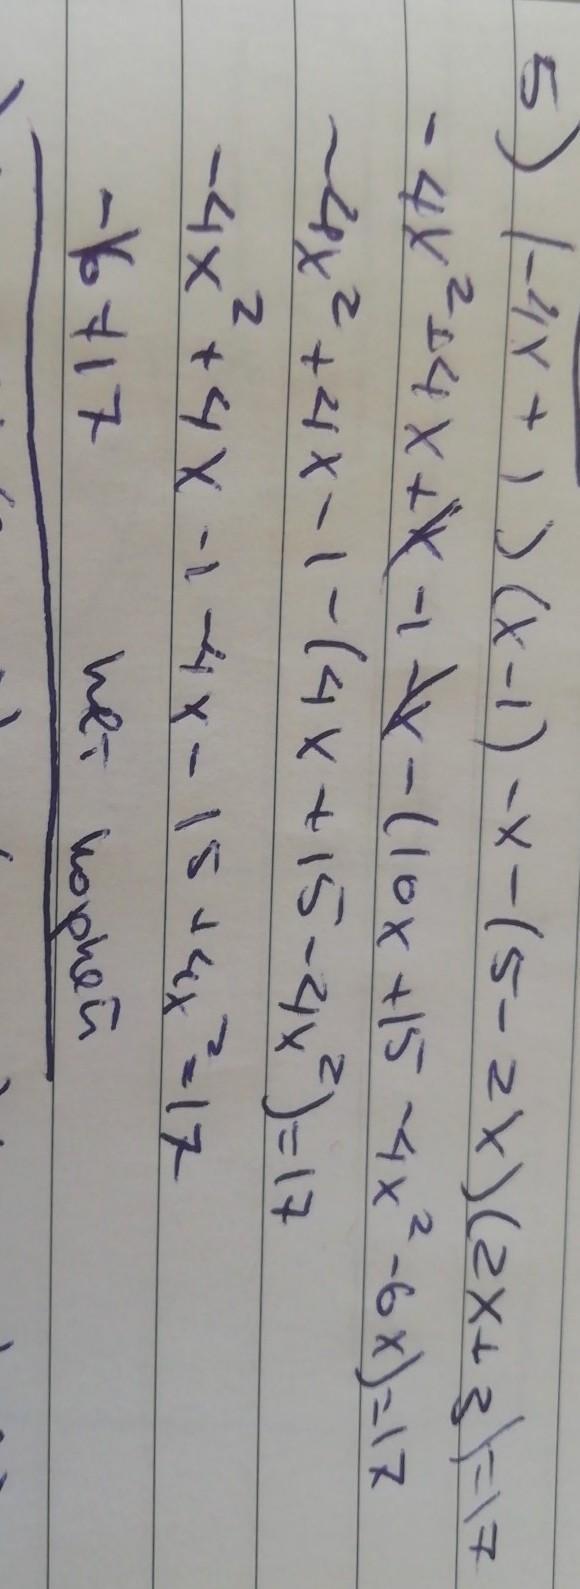 5) (-4x+1)(x-1)-x-(5-2x)(2x+3)=17
-4x²+4x+x-1-x-(10x+15-4x²-6x)=17
-4x²+4x-1-(4x+15-4x²)=17
-4x²+4x-1-4x-15+4x²=17
-16≠17 нет корней